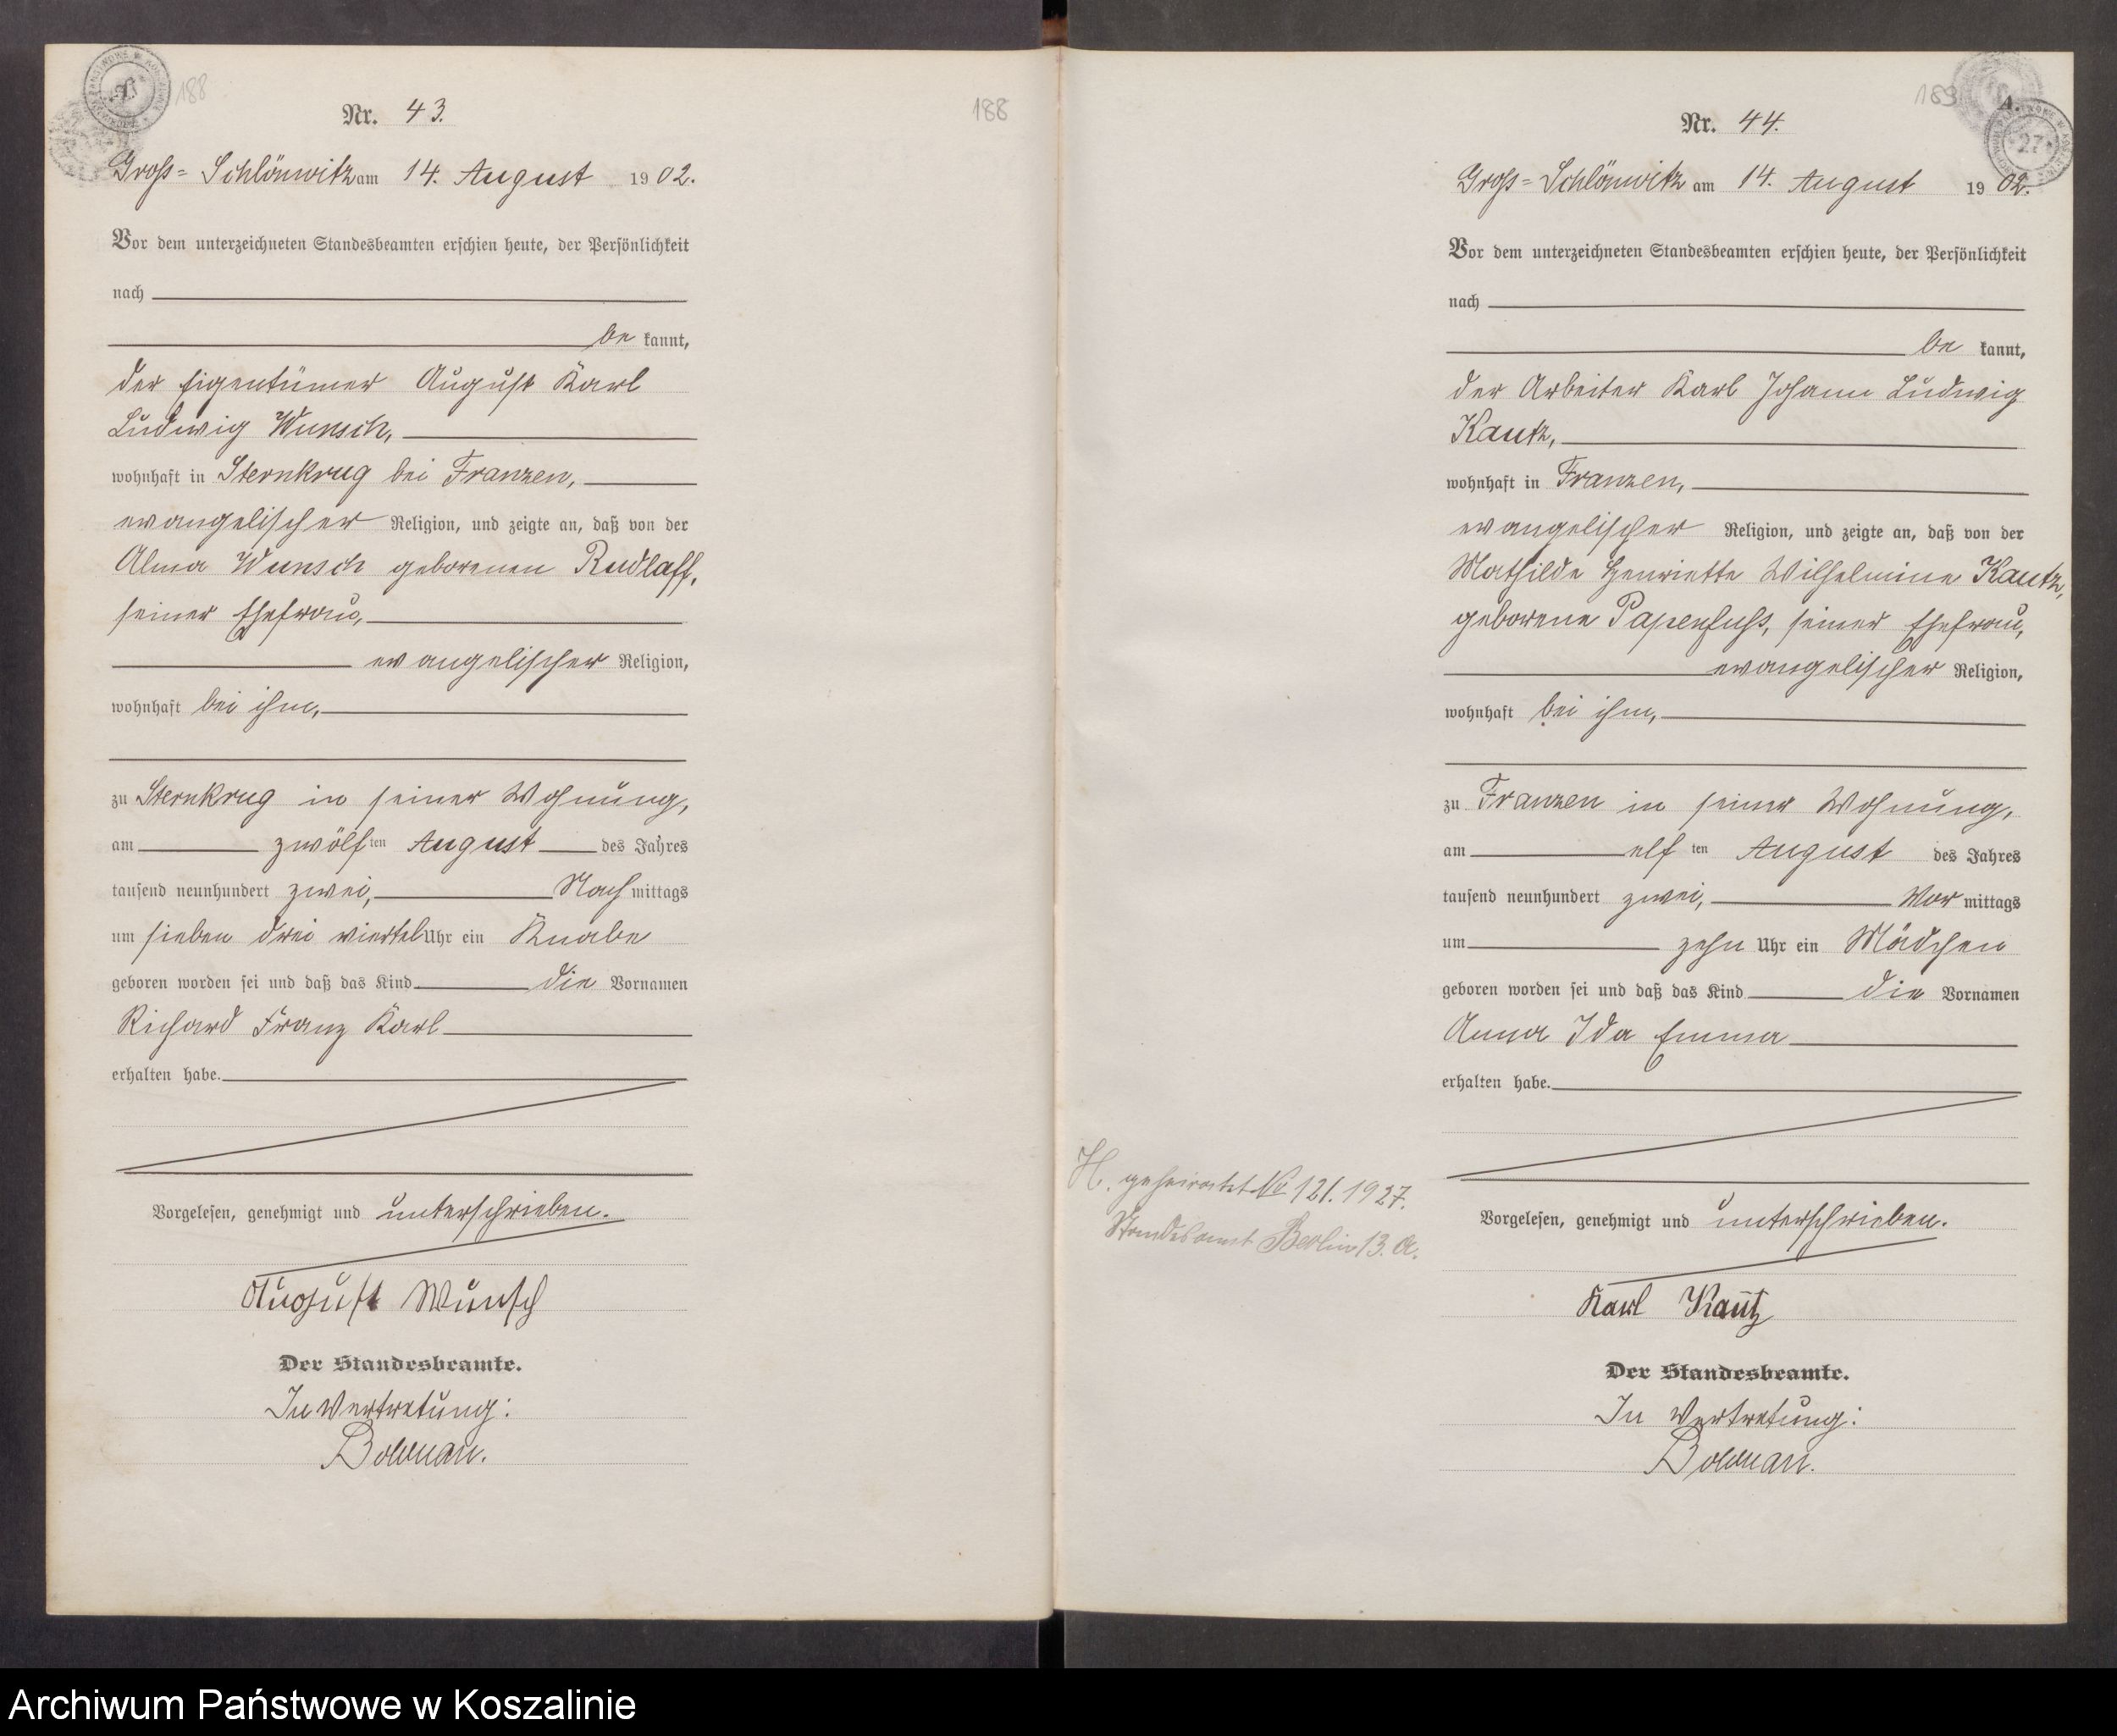 188
Nr. 43.
Groß=Schlönwitz am 14. August 1902.
Vor dem unterzeichneten Standesbeamten erschien heute, der Persönlichkeit
nach
be kannt,
der Eigentümer August Karl
Ludwig Wunsch,
wohnhaft in Sternkrug bei Franzen,
evangelischer Religion, und zeigte an, daß von der
Alma Wunsch geborenen Rudlaff,
seiner Ehefrau,
evangelischer Religion,
wohnhaft bei ihm,
zu Sternkrug in seiner Wohnung,
am zwölf ten August des Jahres
tausend neunhundert zwei, Nach mittags
um sieben drei viertel Uhr ein Knabe
geboren worden sei und daß das Kind die Vornamen
Richard Franz Karl
erhalten habe.
Vorgelesen, genehmigt und unterschrieben.
August Wunsch
Der Standesbeamte.
In Vertretung:
188
189
A.
27
Nr. 44.
Groß=Schlönwitz am 14. August 1902.
Vor dem unterzeichneten Standesbeamten erschien heute, der Persönlichkeit
nach
be kannt,
der Arbeiter Karl Johann Ludwig
Kautz,
wohnhaft in Franzen,
evangelischer Religion, und zeigte an, daß von der
Mathilde Henriette Wilhelmine Kautz,
geborene Papenfuß, seiner Ehefrau,
evangelischer Religion,
wohnhaft bei ihm,
zu Franzen in seiner Wohnung,
am elf ten August des Jahres
tausend neunhundert zwei, Vor mittags
um zehn Uhr ein Mädchen
geboren worden sei und daß das Kind die Vornamen
Anna Ida Emma
erhalten habe.
H. geheiratet Nr 121. 1927.
Standesamt Berlin 13. a.
Vorgelesen, genehmigt und unterschrieben.
Karl Kautz
Der Standesbeamte.
In Vertretung:
Archiwum Państwowe w Koszalinie